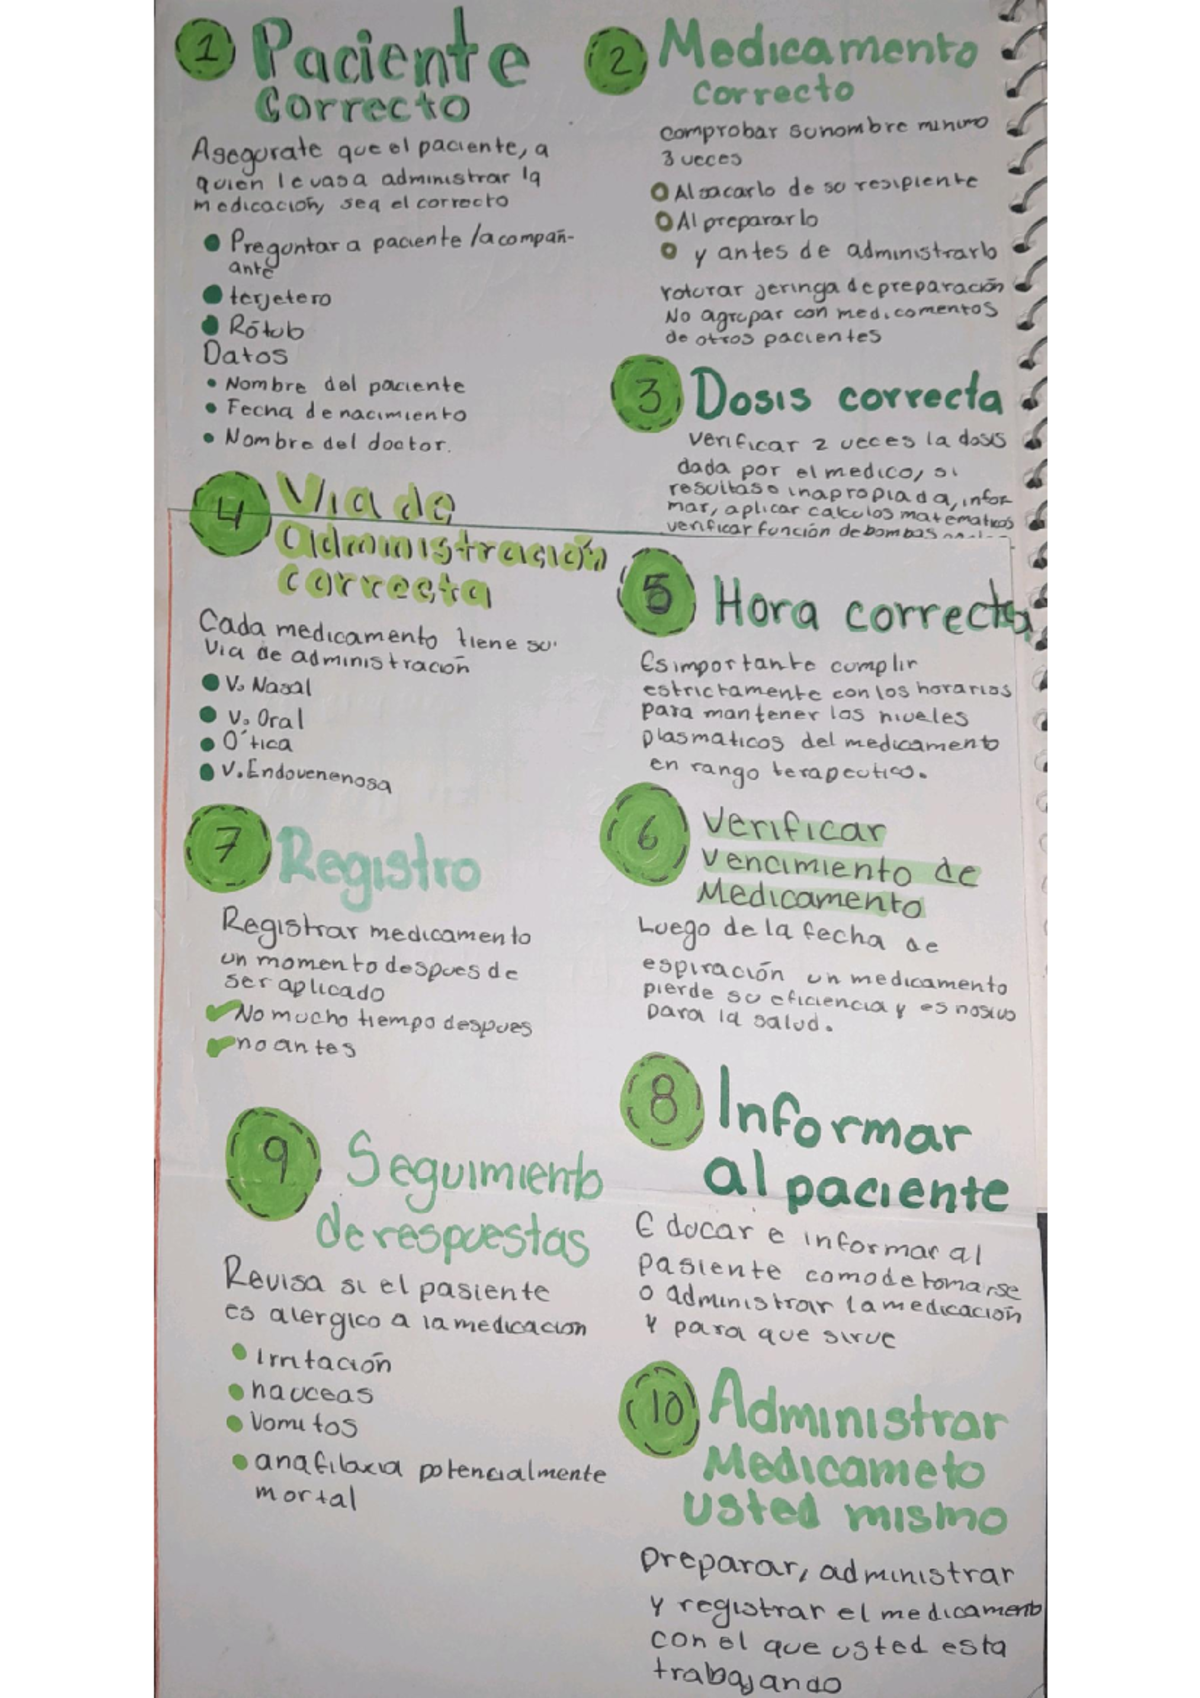 1 Paciente
Correcto
Asegurate que el paciente, a
quien le vas a administrar la
medicación, sea el correcto
Preguntar a paciente /acompañ-
ante
terjetero
Rótulo
Datos
Nombre del paciente
Fecha de nacimiento
Nombre del doctor.
2 Medicamento
Correcto
comprobar su nombre minimo
3 veces
Al sacarlo de su resipiente
Al prepararlo
y antes de administrarlo
roturar jeringa de preparación
No agrupar con medicamentos
de otros pacientes
3 Dosis correcta
Verificar 2 veces la dosis
dada por el medico, si
resultase inapropiada, infor
mar, aplicar calculos matematicos
verificar función de bombas
4 Via de
administración
correcta
Cada medicamento tiene su
via de administración
V. Nasal
V. Oral
O´tica
V. Endovenenosa
5 Hora correcta
Es importante cumplir
estrictamente con los horarios
para mantener los niveles
plasmaticos del medicamento
en rango terapeutico.
6 Verificar
vencimiento de
Medicamento
Luego de la fecha de
espiración un medicamento
pierde su eficiencia y es nosivo
para la salud.
7 Registro
Registrar medicamento
un momento despues de
ser aplicado
✓ No mucho tiempo despues
✓ no antes
8 Informar
al paciente
Educar e informar al
pasiente como de tomarse
o administrar la medicación
y para que sirve
9 Seguimiento
de respuestas
Revisa si el pasiente
es alergico a la medicacion
Irritación
nauceas
Vomitos
anafilaxia potencialmente
mortal
10 Administrar
Medicameto
usted mismo
Preparar, administrar
y registrar el medicamento
con el que usted esta
trabajando